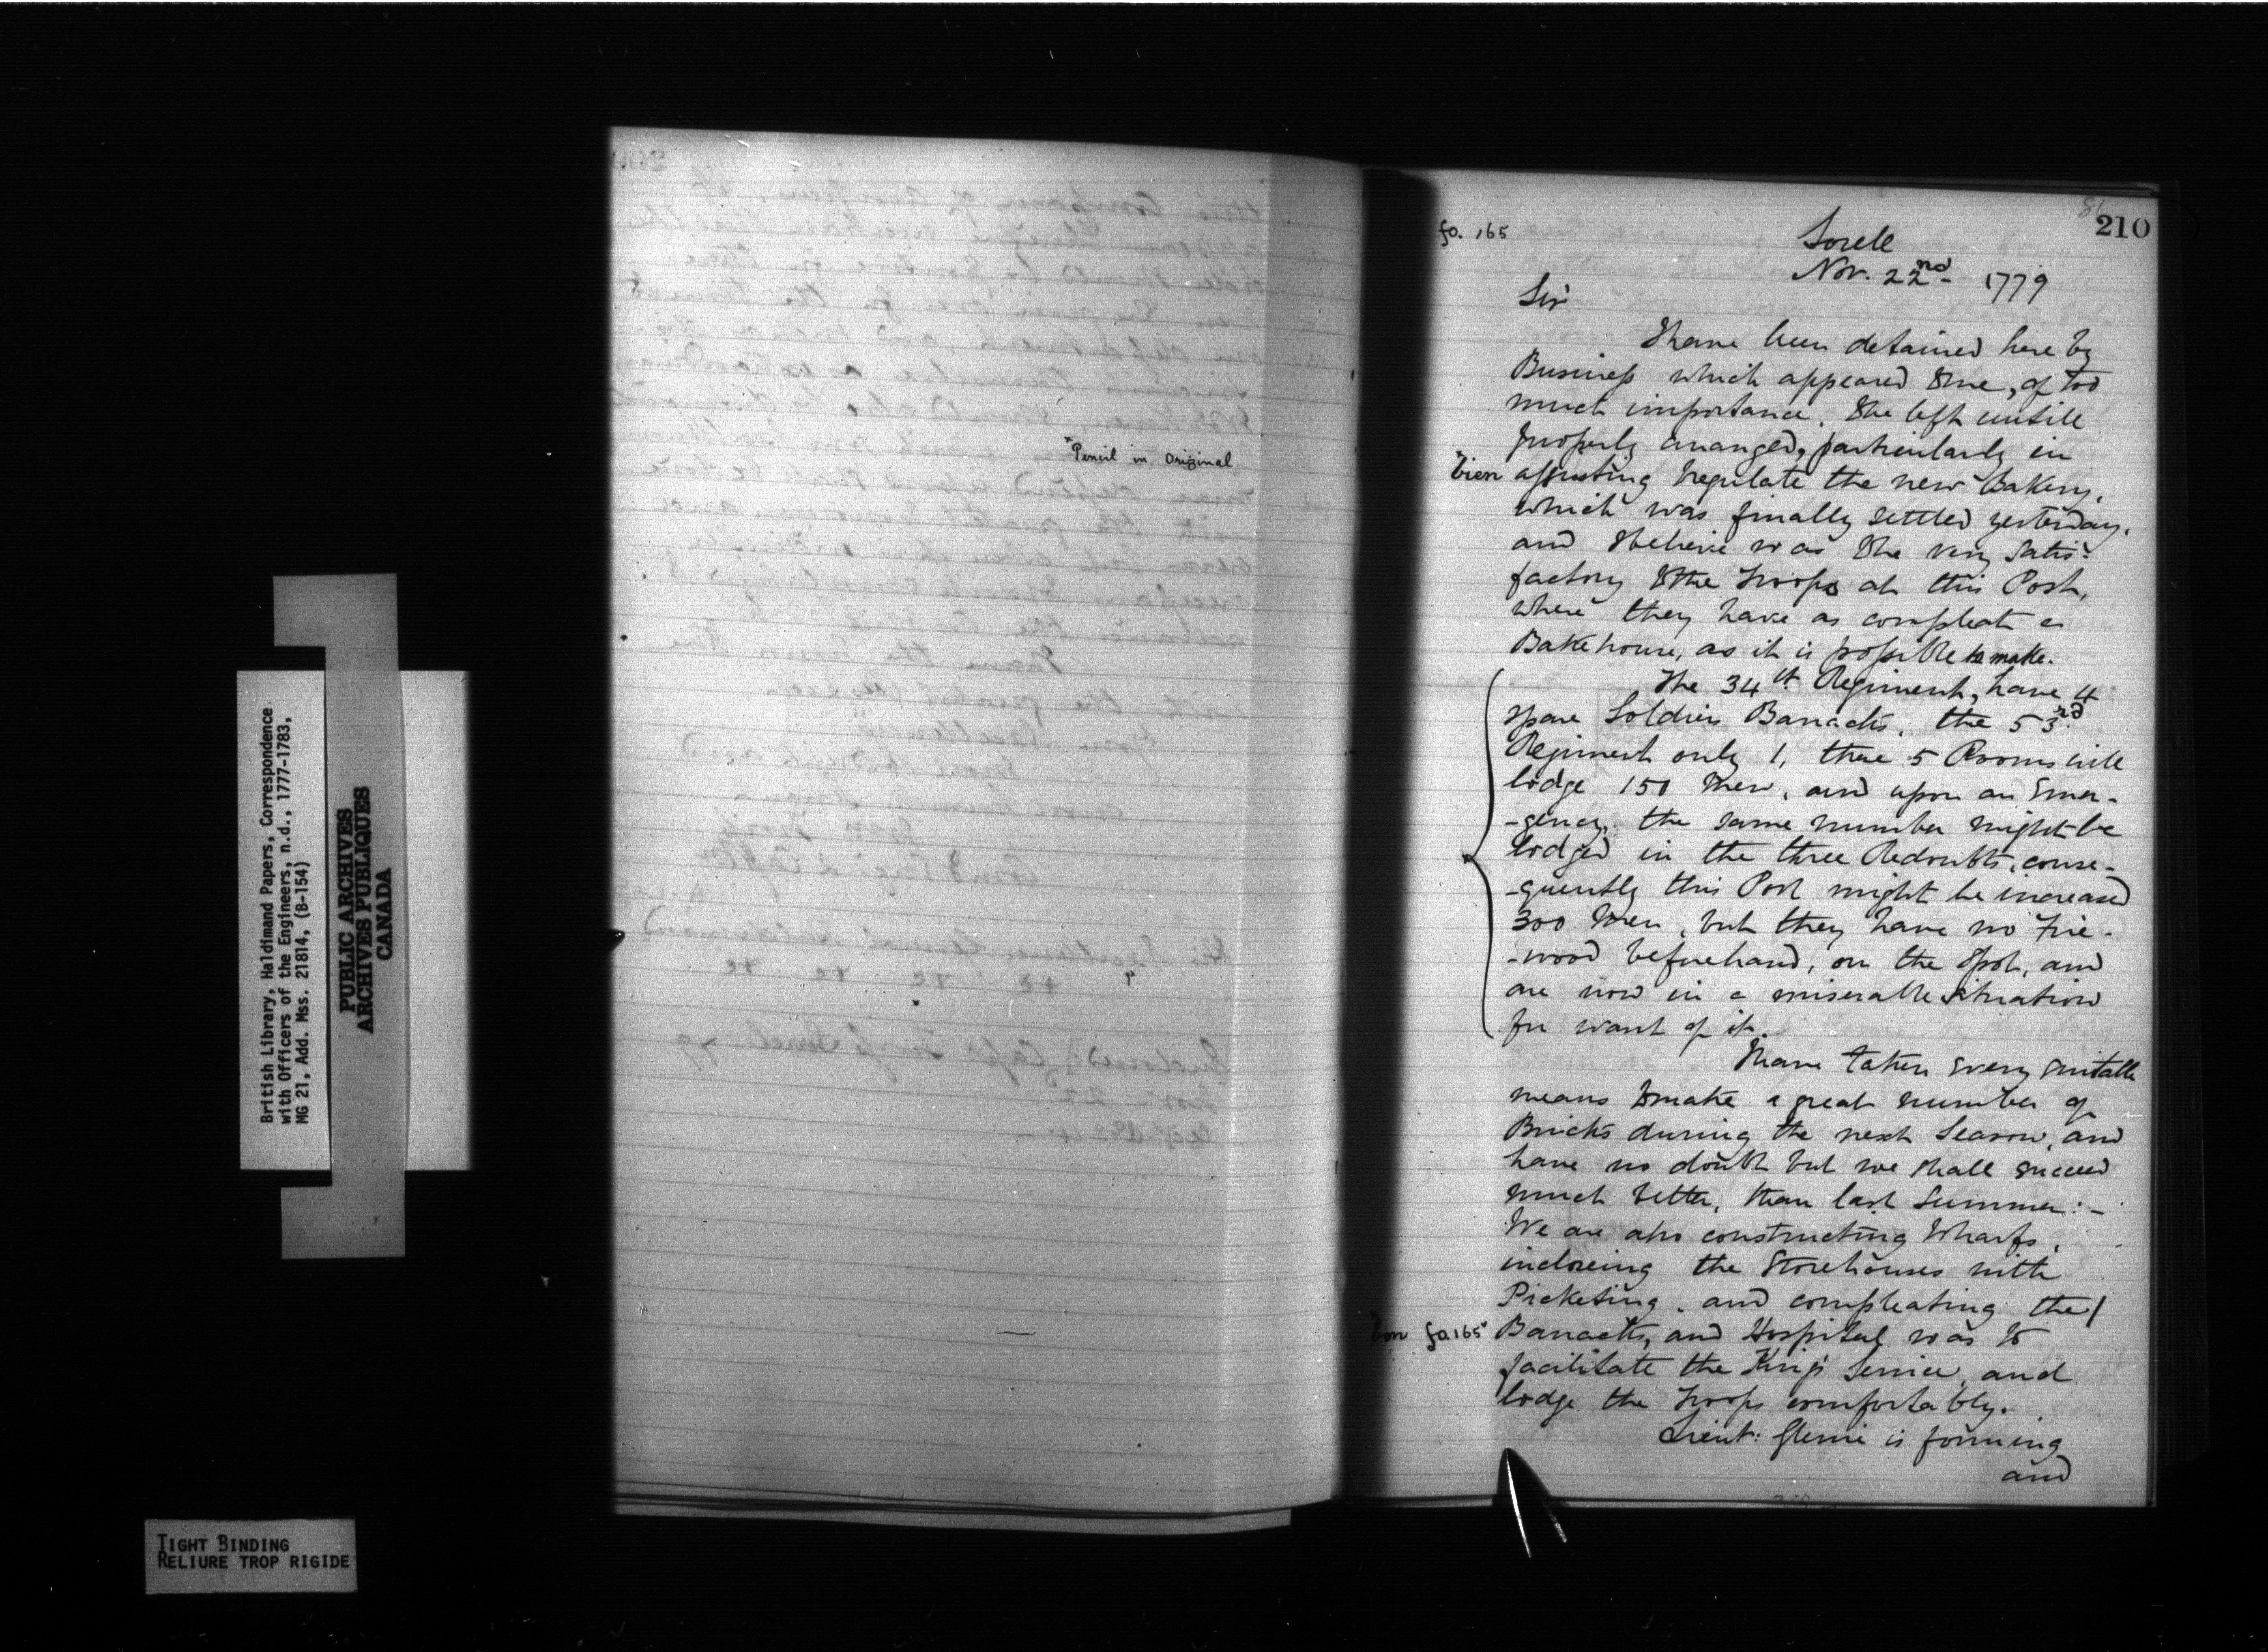 British Library, Haldimand Papers, Correspondence
with Officers of the Engineers, n.d., 1777-1783,
MG 21, Add. Mss. 21814, (B-154)
PUBLIC ARCHIVES
ARCHIVES PUBLIQUES
CANADA
TIGHT BINDING
RELIURE TROP RIGIDE
*Pencil in Original
210
fo. 165
Sorell
Nov. 22nd- 1779
Sir
I have been detained here by
Business which appeared to me, of too
much importance, to be left untill
properly arranged, particularly in
*bien adjusting & regulate the new Bakery,
which was finally settled yesterday,
and I believe was to be very satis-
factory to the Troops at this Post,
where they have as compleat a
Bakehouse, as it is possible to make.
The 34th Regiment, have 4
spare Soldiers Barracks, the 53rd
Regiment only 1, these 5 Rooms will
lodge 150 Men, and upon an Emer-
-gency, the same number might be
lodged in the three Redoubts, conse-
-quently this Post might be increased
300 Men, but they have no Fire-
-wood beforehand, on the Spot, and
are now in a miserable situation
for want of it.
I have taken every suitable
means to make a great number of
Bricks during the next Season, and
have no doubt but we shall succeed
much better, than last Summer:-
We are also constructing Wharfs,
incloseing the Storehouses with
Picketing, and compleating the/
bon fo. 165* Barracks, and Hospital was to
facilitate the King's Service, and
lodge the Troops comfortably.
Lieut: Glenie is forming
and